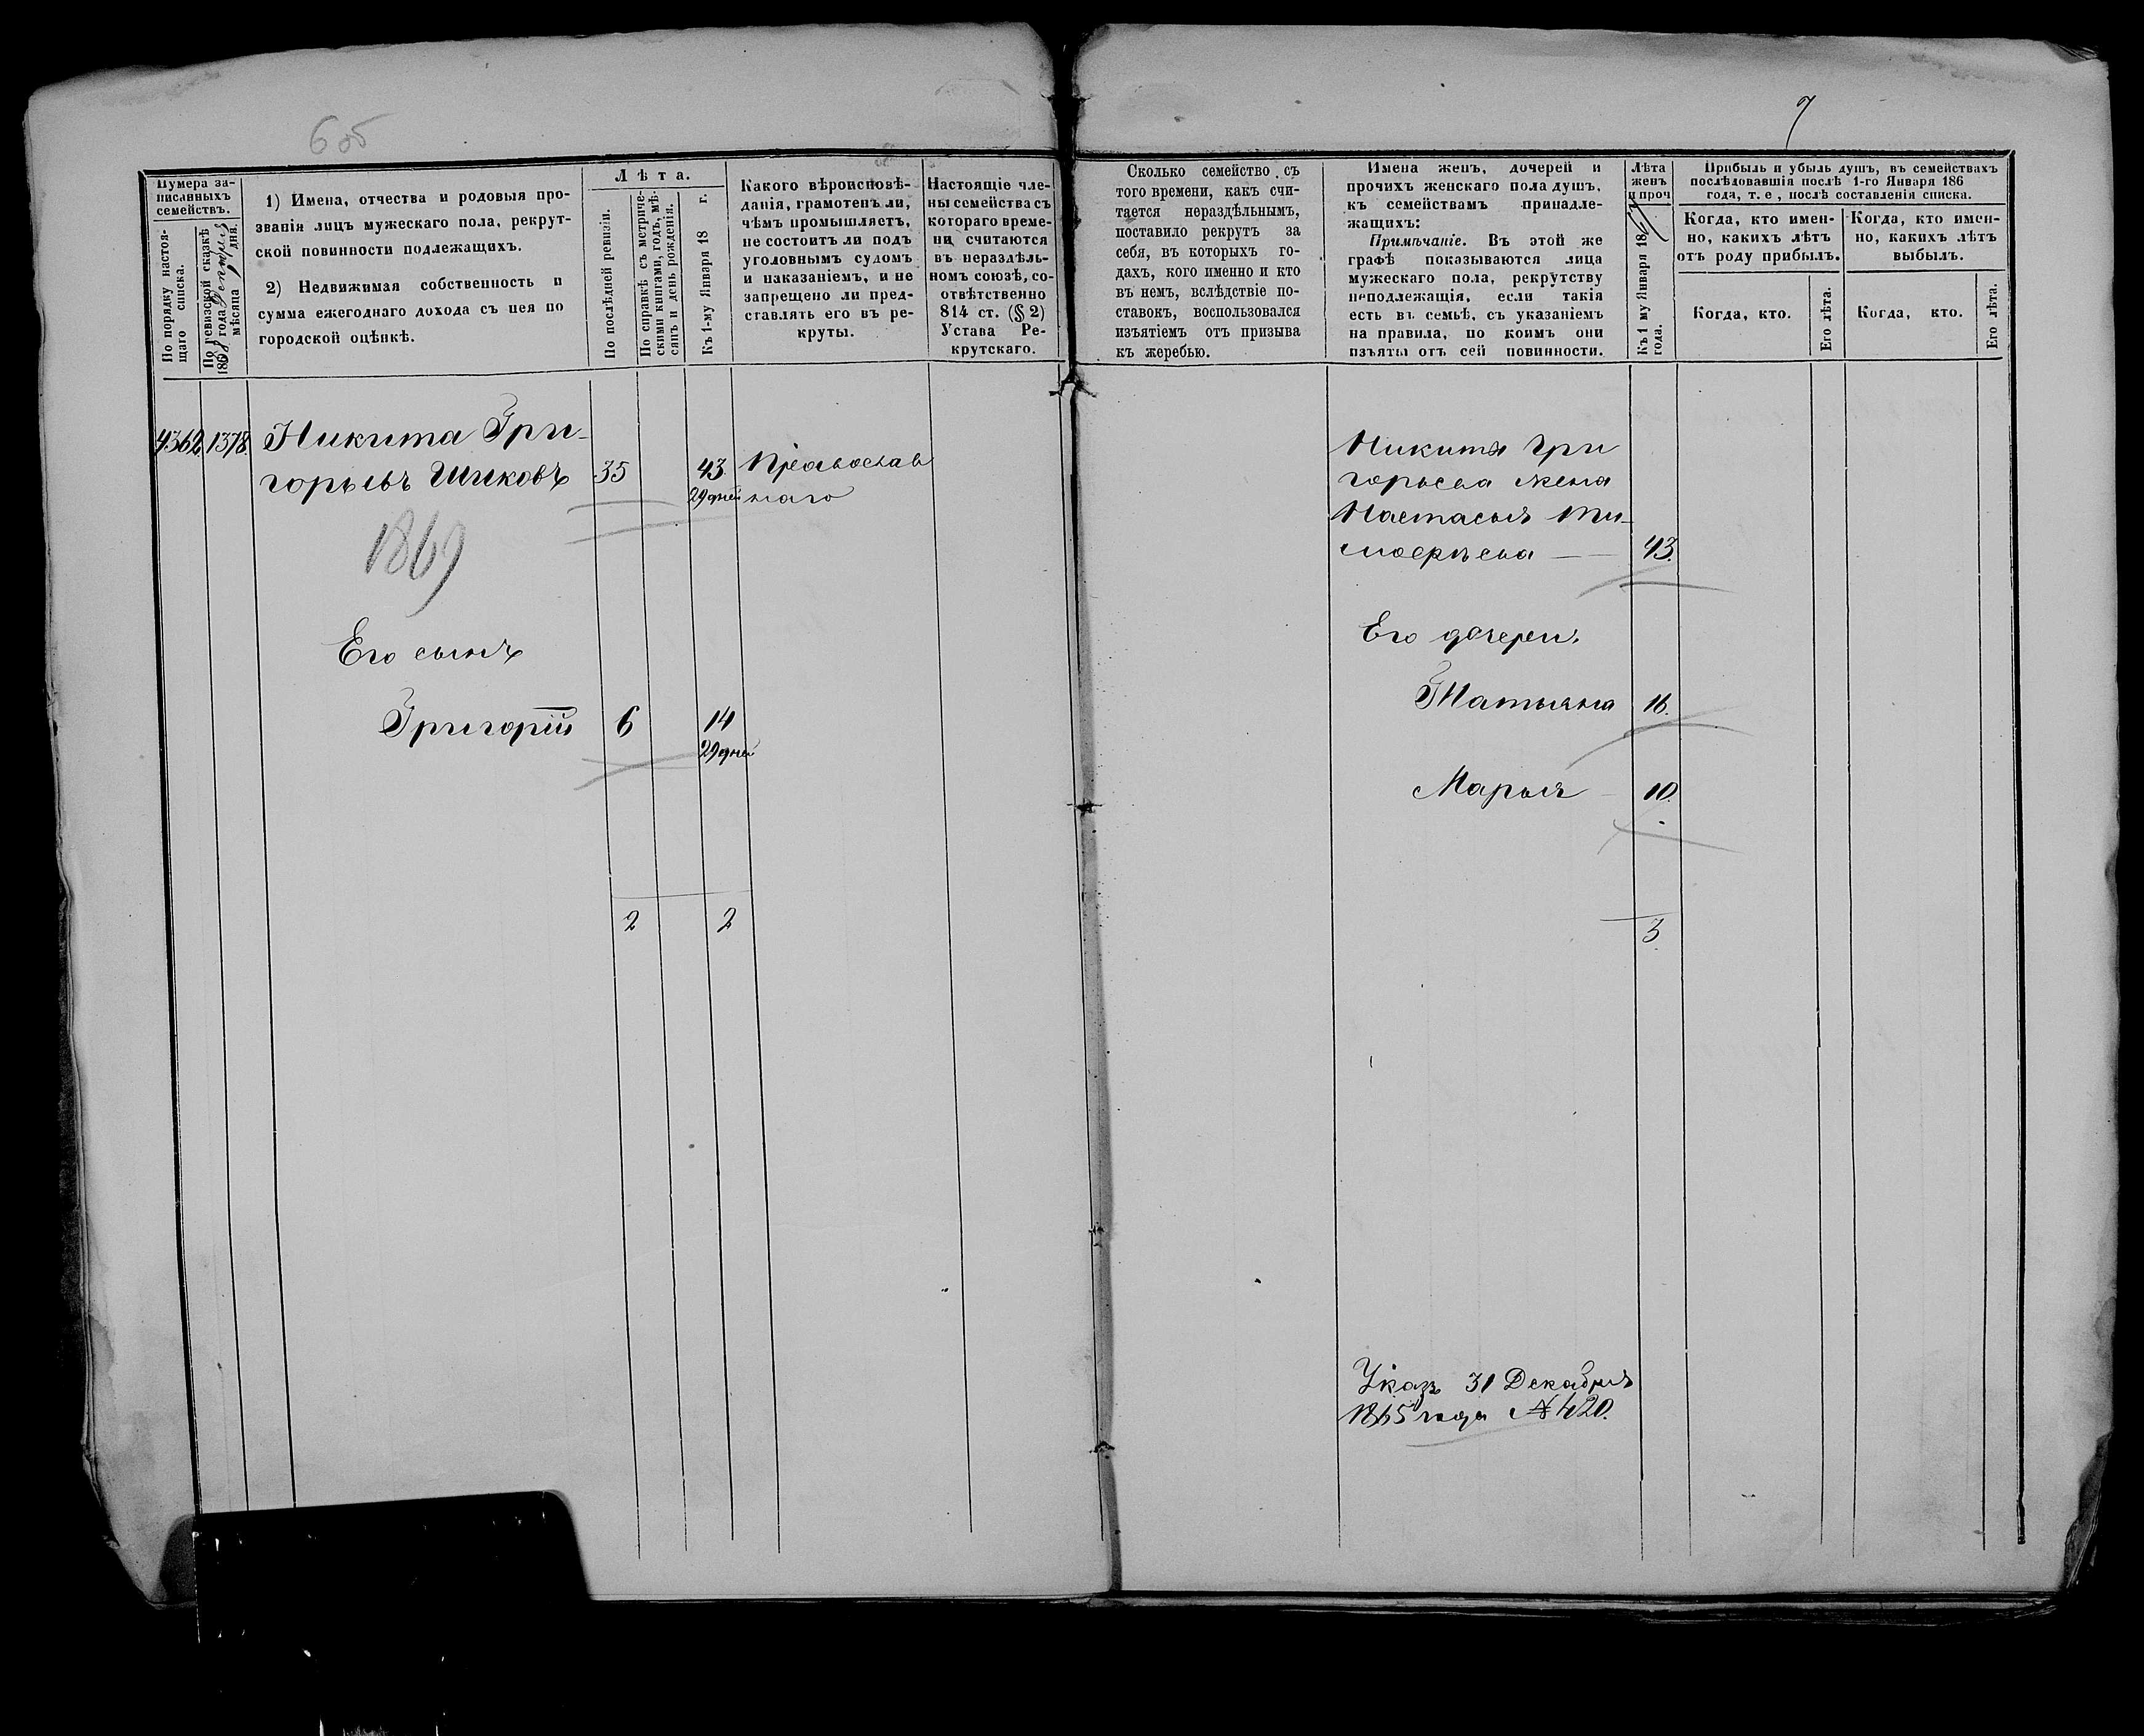 6 об
7
Нумера за-
писанныхъ
семействъ.
По порядку настоя-
щаго списка.
По ревизской сказкѣ
1858 года
мѣсяца дня.
1) Имена, отчества и родовыя про-
званія лицъ мужескаго пола, рекрут-
ской повинности подлежащихъ.
2) Недвижимая собственность и
сумма ежегоднаго дохода съ нея по
городской оцѣнкѣ.
Лѣта.
По послѣдней ревизіи.
По справкѣ съ метриче-
скими книгами, годъ, мѣ-
сяцъ и день рожденія.
Къ 1-му Января 18 г.
Какого вѣроисповѣ-
данія, грамотенъ ли,
чѣмъ промышляетъ,
не состоитъ ли подъ
уголовнымъ судомъ
и наказаніемъ, и не
запрещено ли пред-
ставлять его въ ре-
круты.
Настоящіе чле-
ны семейства съ
котораго време-
ни считаются
въ нераздѣль-
номъ союзѣ, со-
отвѣтственно
814 ст. (§ 2)
Устава Ре-
крутскаго.
Сколько семейство съ
того времени, какъ счи-
тается нераздѣльнымъ,
поставило рекрутъ за
себя, въ которыхъ го-
дахъ, кого именно и кто
въ немъ, вслѣдствіе по-
ставокъ, воспользовался
изъятіемъ отъ призыва
къ жеребью.
Имена женъ, дочерей и
прочихъ женскаго пола душъ,
къ семействамъ принадле-
жащихъ:
Примѣчаніе. Въ этой же
графѣ показываются лица
мужескаго пола, рекрутству
неподлежащія, если такія
есть въ семьѣ, съ указаніемъ
на правила, по коимъ они
изъяты отъ сей повинности.
Лѣта
женъ
и проч
Къ 1 му Января 18
года.
Прибыль и убыль душъ, въ семействахъ
послѣдовавшія послѣ 1-го Января 186
года, т. е , послѣ составленія списка.
Когда, кто имен-
но, какихъ лѣтъ
отъ роду прибылъ.
Когда, кто имен-
но, какихъ лѣтъ
выбылъ.
Когда, кто.
Его лѣта.
Когда, кто.
Его лѣта.
4362 1378 Никита Гри-
горьевъ Шиковъ 35 43 Православ
29 дней наго
1869
Его сынъ
Григорій 6 14
29 дней
2 2
Никиты Гри
горьева жена
Настасья Ти-
мофѣева — 43.
Его дочери.
Татьяна 16.
Марья 10.
3
Указъ 31 Декабря
1865 года № 420.